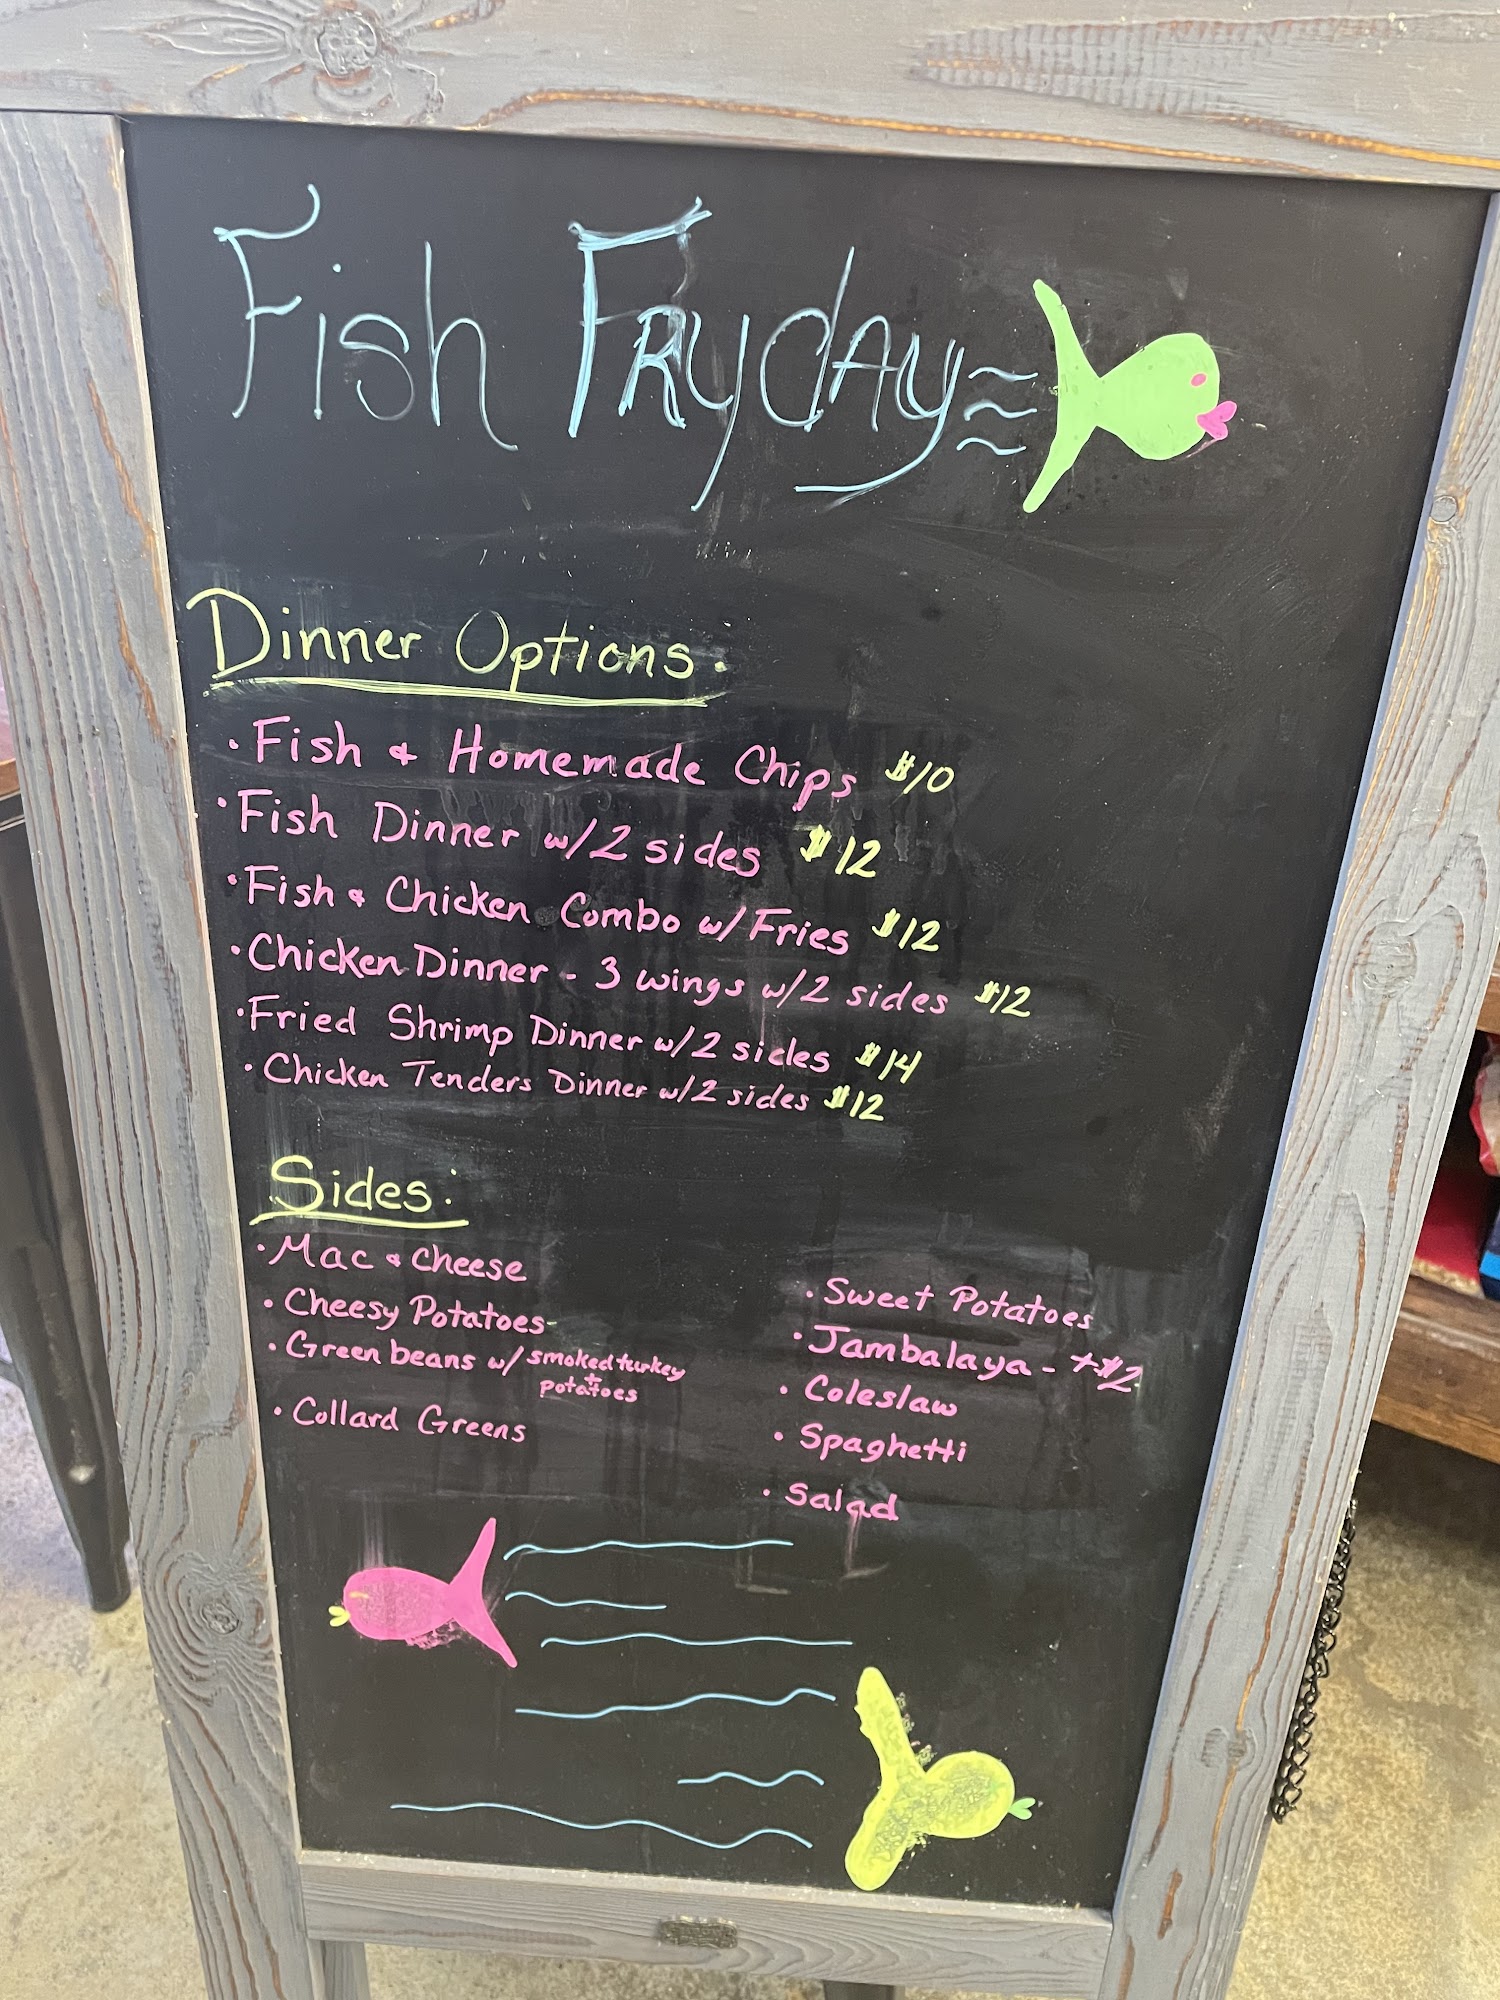 Fish FRydAy
Dinner Options:
• Fish & Homemade Chips $10
• Fish Dinner w/2 sides $12
• Fish & Chicken Combo w/ Fries $12
• Chicken Dinner - 3 wings w/2 sides $12
• Fried Shrimp Dinner w/2 sides $14
• Chicken Tenders Dinner w/2 sides $12
Sides:
• Mac & Cheese
• Cheesy Potatoes
• Green beans w/ smoked turkey
+
potatoes
• Collard Greens
• Sweet Potatoes
• Jambalaya - +$2
• Coleslaw
• Spaghetti
• Salad